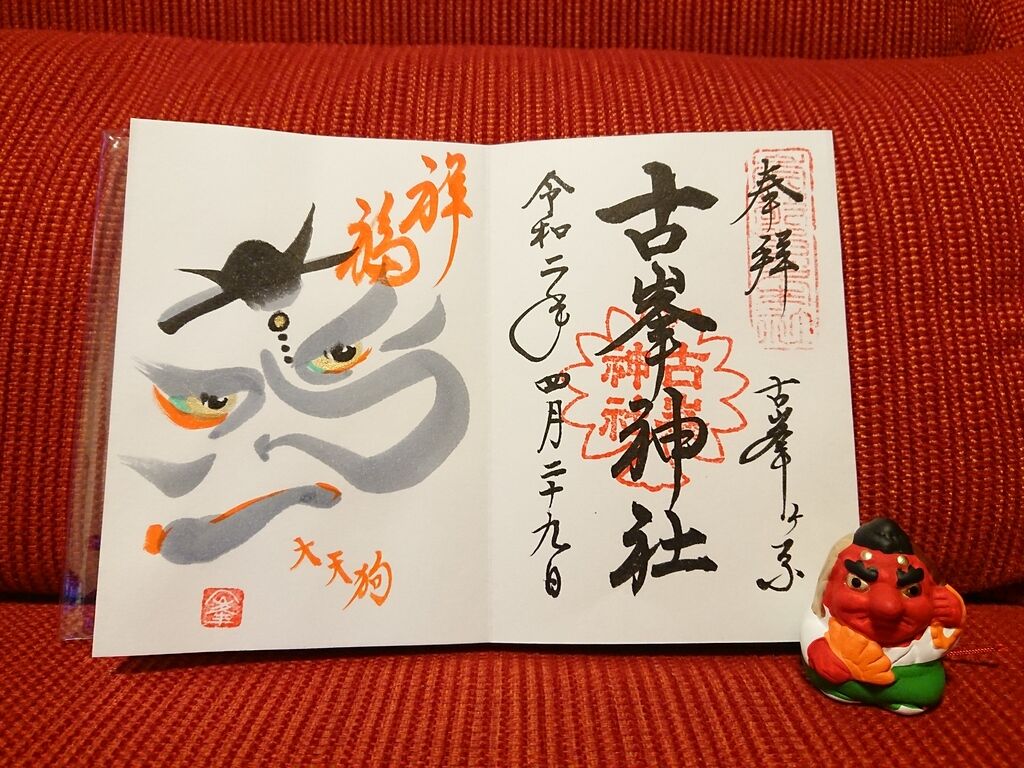 奉拝
古峯ヶ原
古峯神社
古峯
神社
令和二年四月二十九日
祥福
大天狗
峯